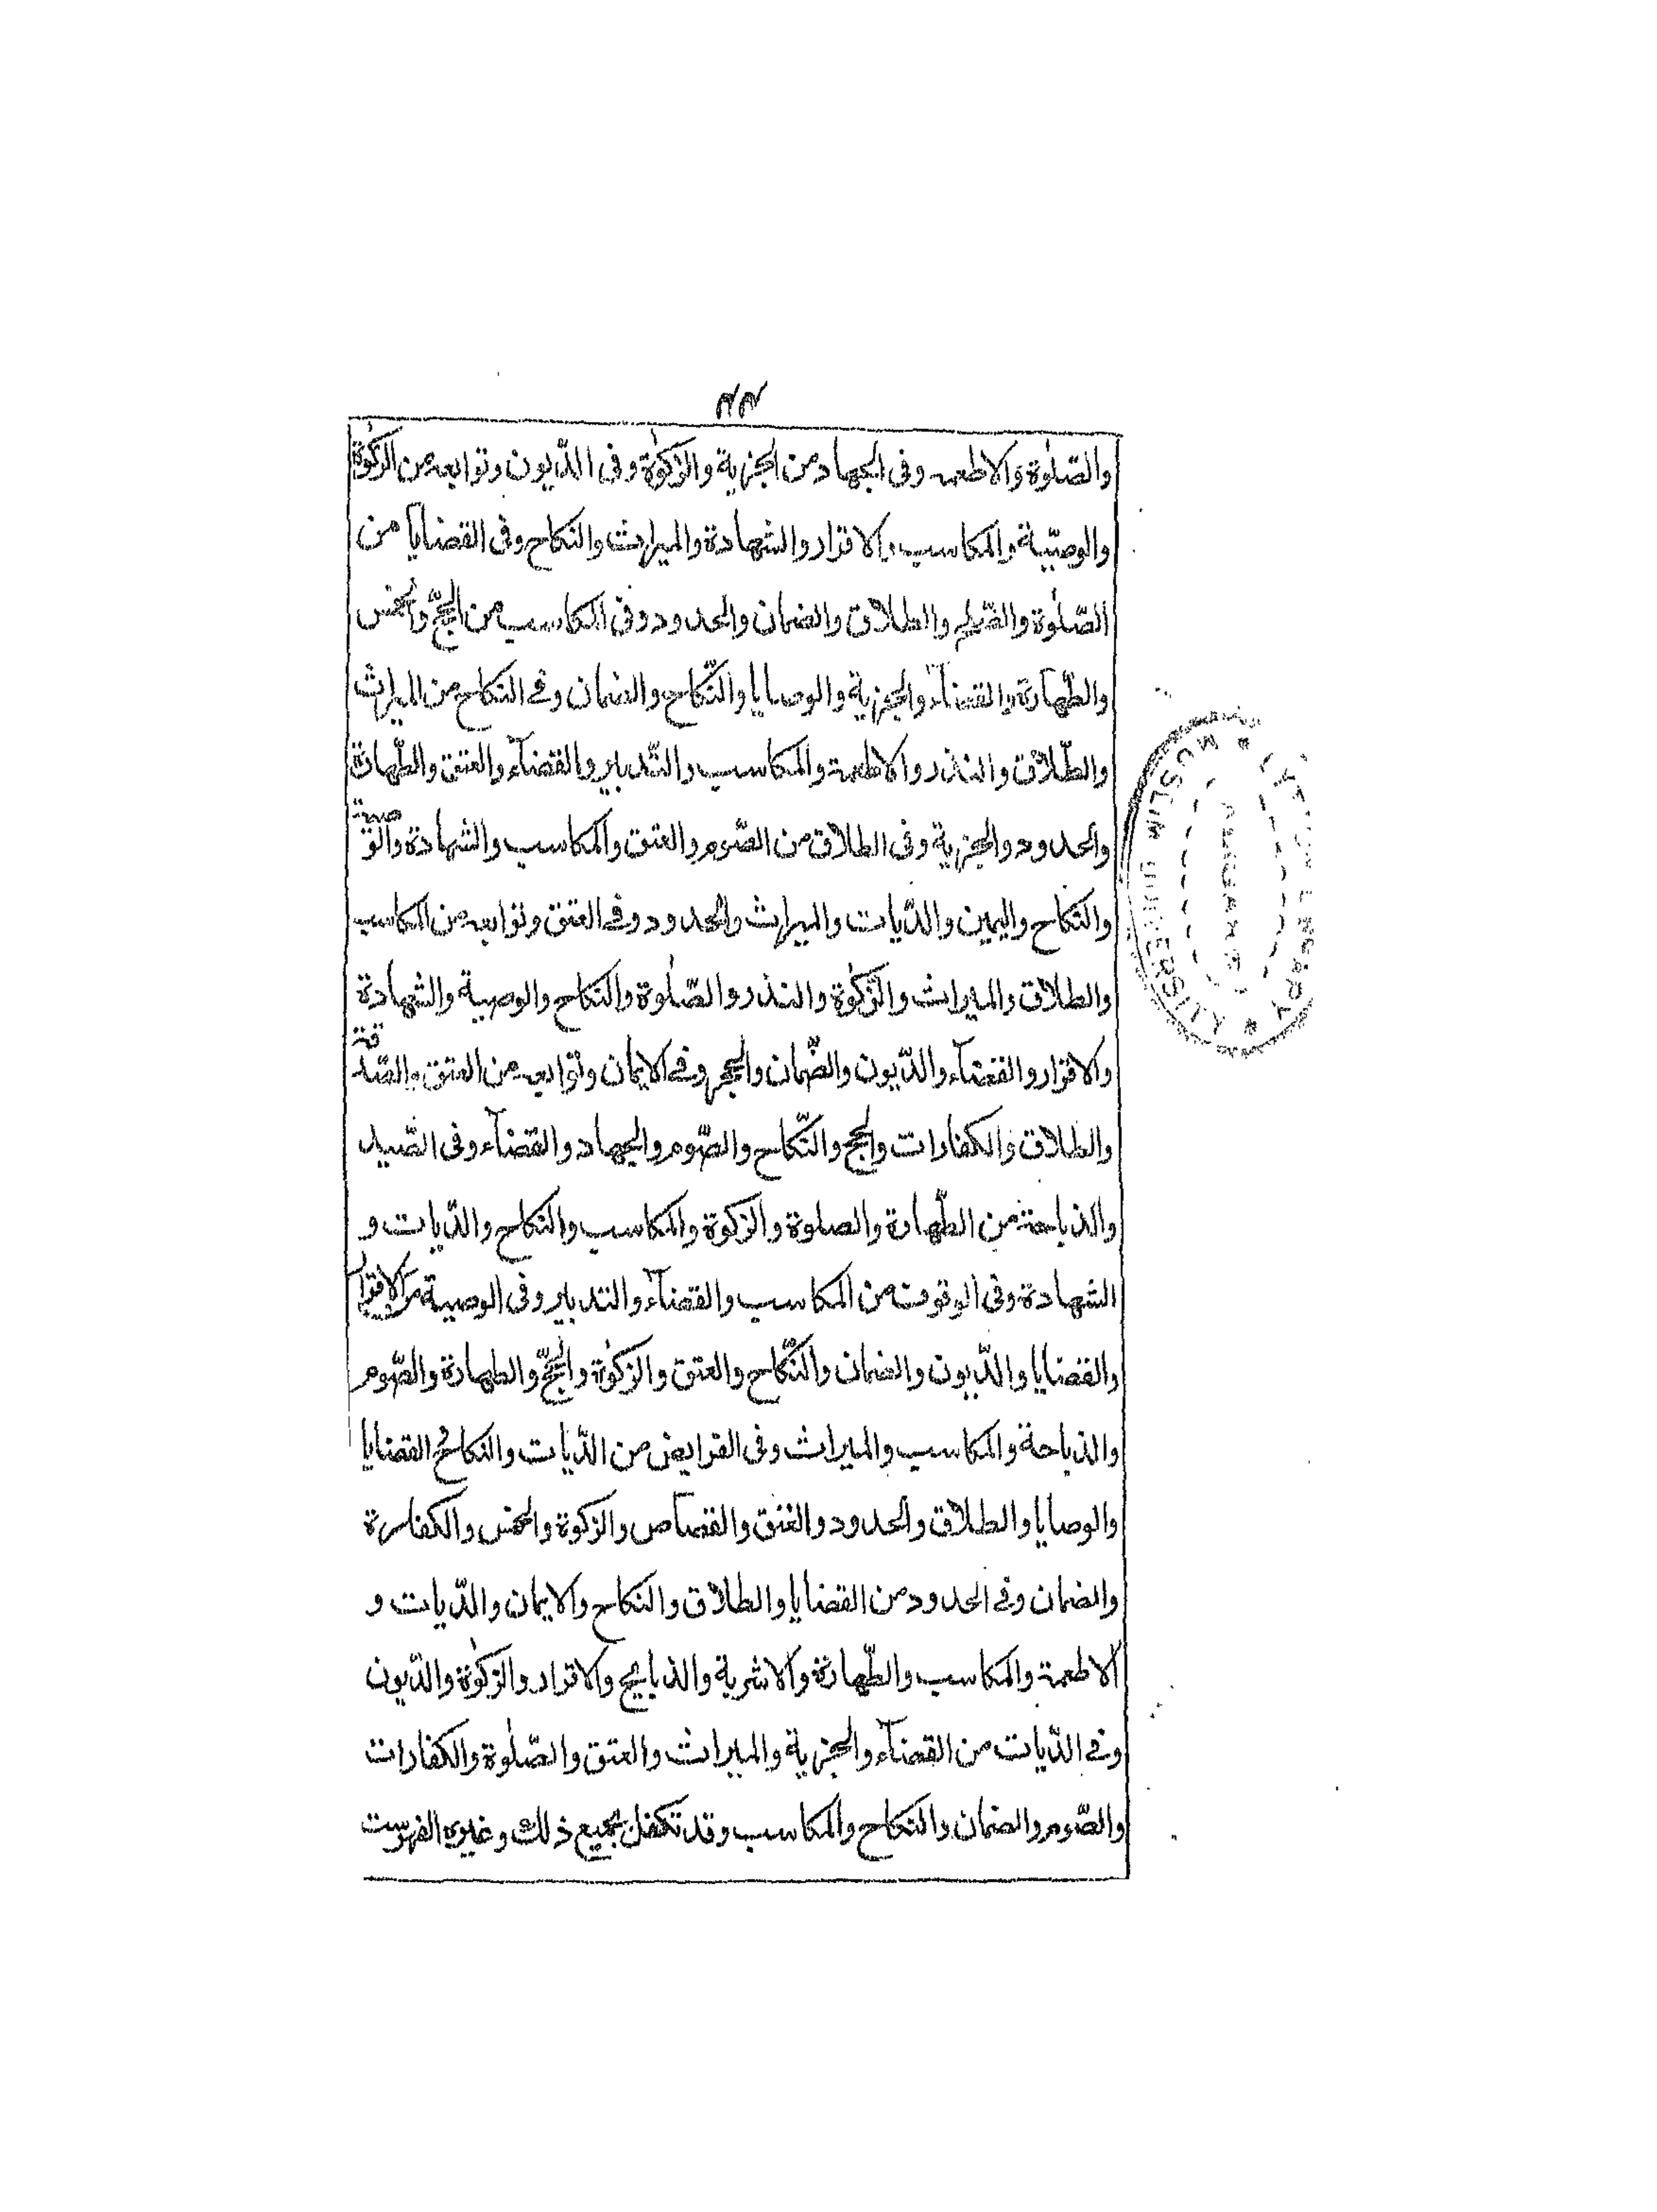 ٤٤
والصّلوٰة والاطعمه وفى الجهاد من الجزية والزكوٰة وفى الدّيون وتوابعه من الزكوٰة
والوصيّة والمكاسب والاقرار والشهادة والميراث والنكاح وفى القضايا من
الصّلوٰة والطلاق والضمان والحدود وفى المكاسب من الحجّ والخمس
والطّهارة والقضآء والجزية والوصايا والنّكاح والضمان وفے النكاح من الميراث
والطّلاق والنذر والاطعمة والمكاسب والتّدبير والقضآء والعتق والطّهارة
والحدود والجزية وفى الطلاق من الصّوم والعتق والمكاسب والشهادة والوصية
والنكاح واليمين والدّيات والميراث والحدود وفے العتق وتوابعه من المكاسب
والطلاق والميراث والزّكوٰة والنذر والصّلوٰة والنكاح والوصية والشهادة
والاقرار والقضآء والدّيون والضّمان والحجر وفے الايمان وتوابعه من العتق والصّدقة
والطلاق والكفارات والحج والنّكاح والصّوم والجهاد والقضآء وفى الصّيد
والذباحة من الطّهارة والصلوة والزكوة والمكاسب والنكاح والدّيات و
الشهادة وفى الوقوف من المكاسب والقضآء والتدبير وفى الوصية من الاقرار
والقضايا والدّيون والضمان والنّكاح والعتق والزكوٰة والحجّ والطهارة والصّوم
والذباحة والمكاسب والميراث وفى الفرايض من الدّيات والنكاح والقضايا
والوصايا والطلاق والحدود والعتق والقصاص والزكوة والخمس والكفارة
والضمان وفے الحدود من القضايا والطلاق والنكاح والايمان والدّيات و
الاطعمة والمكاسب والطّهارة والاشربة والذبايح والاقرار والزكوٰة والدّيون
وفے الدّيات من القضآء والجزية والميراث والعتق والصّلوٰة والكفارات
والصّوم والضمان والنكاح والمكاسب وقد تكفل بجميع ذلك وغيره الفهرست
MUSLIM UNIVERSITY
ALIGARH